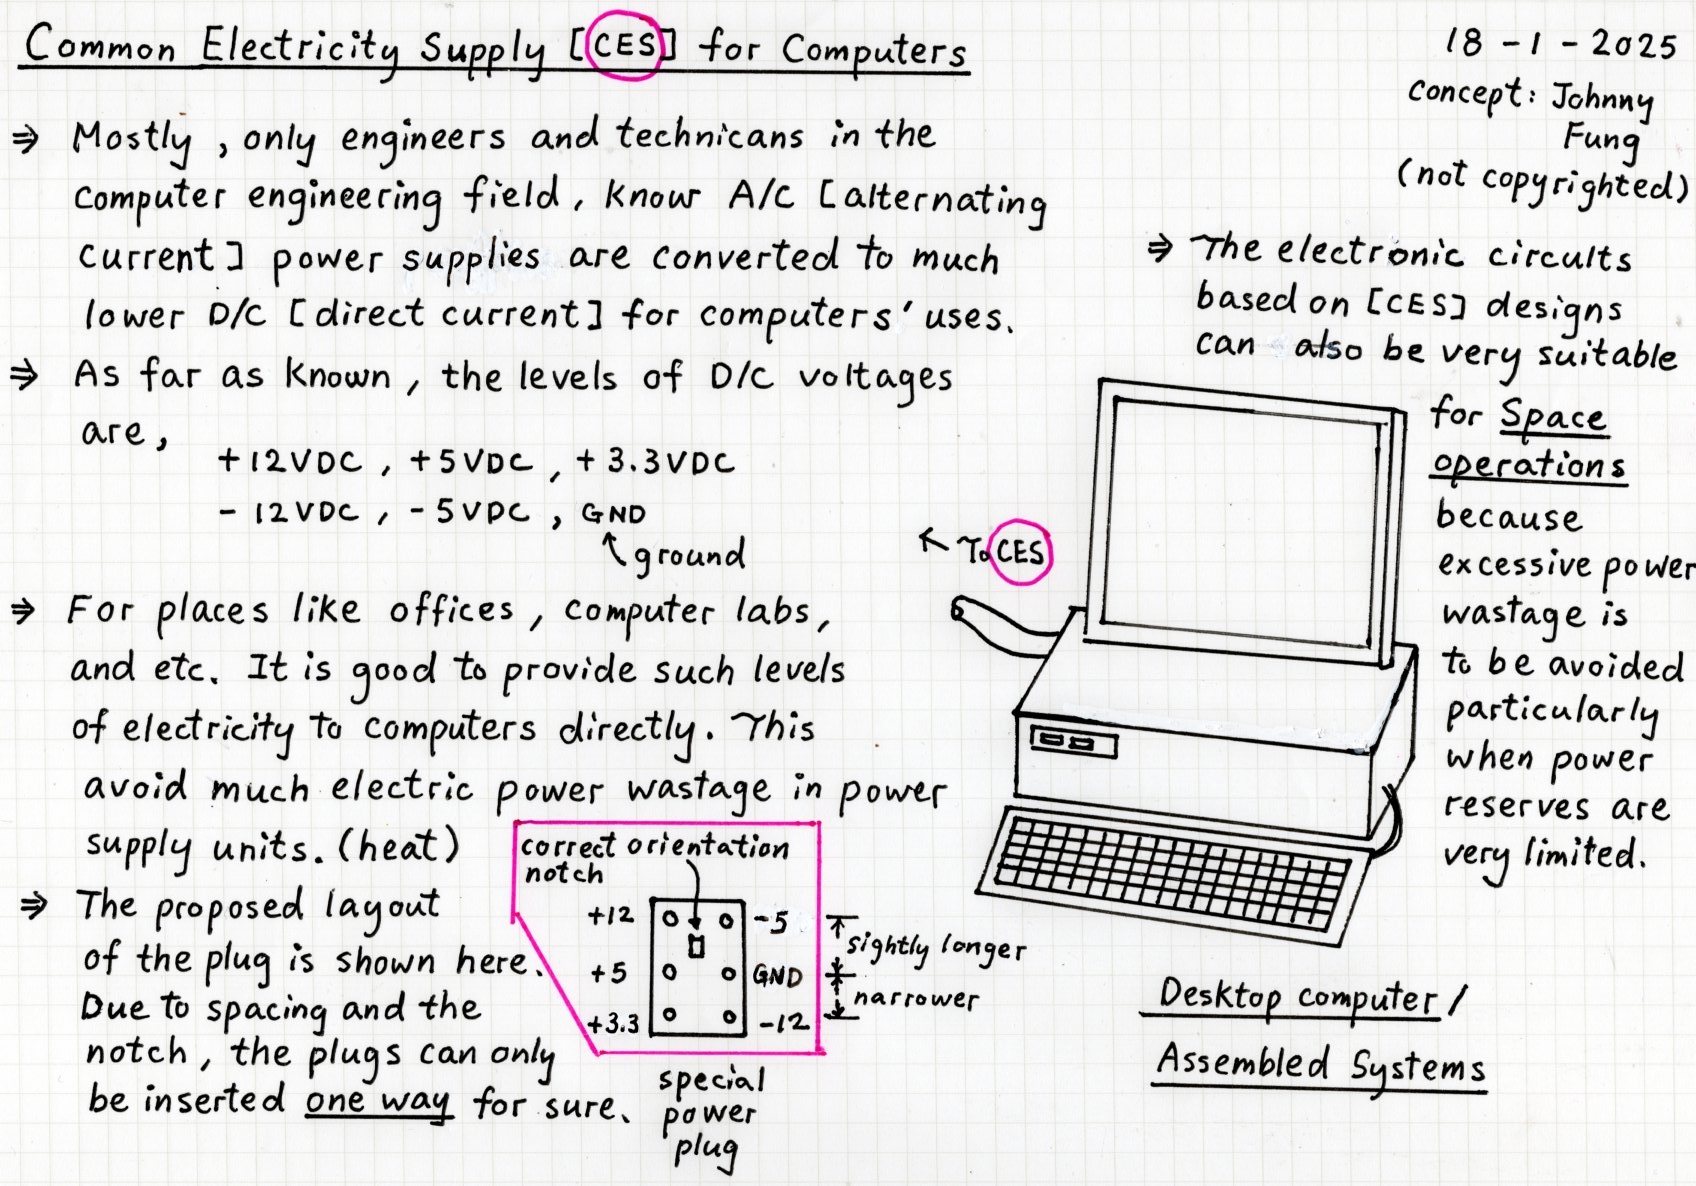 Common Electricity Supply [CES] for Computers
18-1-2025
concept: Johnny
Fung
(not copyrighted)
⇒ Mostly, only engineers and technicans in the
computer engineering field, know A/C [alternating
current] power supplies are converted to much
lower D/C [direct current] for computers' uses.
⇒ As far as known, the levels of D/C voltages
are,
+12VDC, +5VDC, +3.3VDC
-12VDC, -5VDC, GND
ground
⇒ For places like offices, computer labs,
and etc. It is good to provide such levels
of electricity to computers directly. This
avoid much electric power wastage in power
supply units. (heat)
⇒ The proposed layout
of the plug is shown here.
Due to spacing and the
notch, the plugs can only
be inserted one way for sure.
correct orientation
notch
+12
-5
+5
GND
+3.3
-12
sightly longer
narrower
special
power
plug
⇒ The electronic circuits
based on [CES] designs
can also be very suitable
for Space
operations
because
excessive power
wastage is
to be avoided
particularly
when power
reserves are
very limited.
To CES
Desktop computer/
Assembled Systems